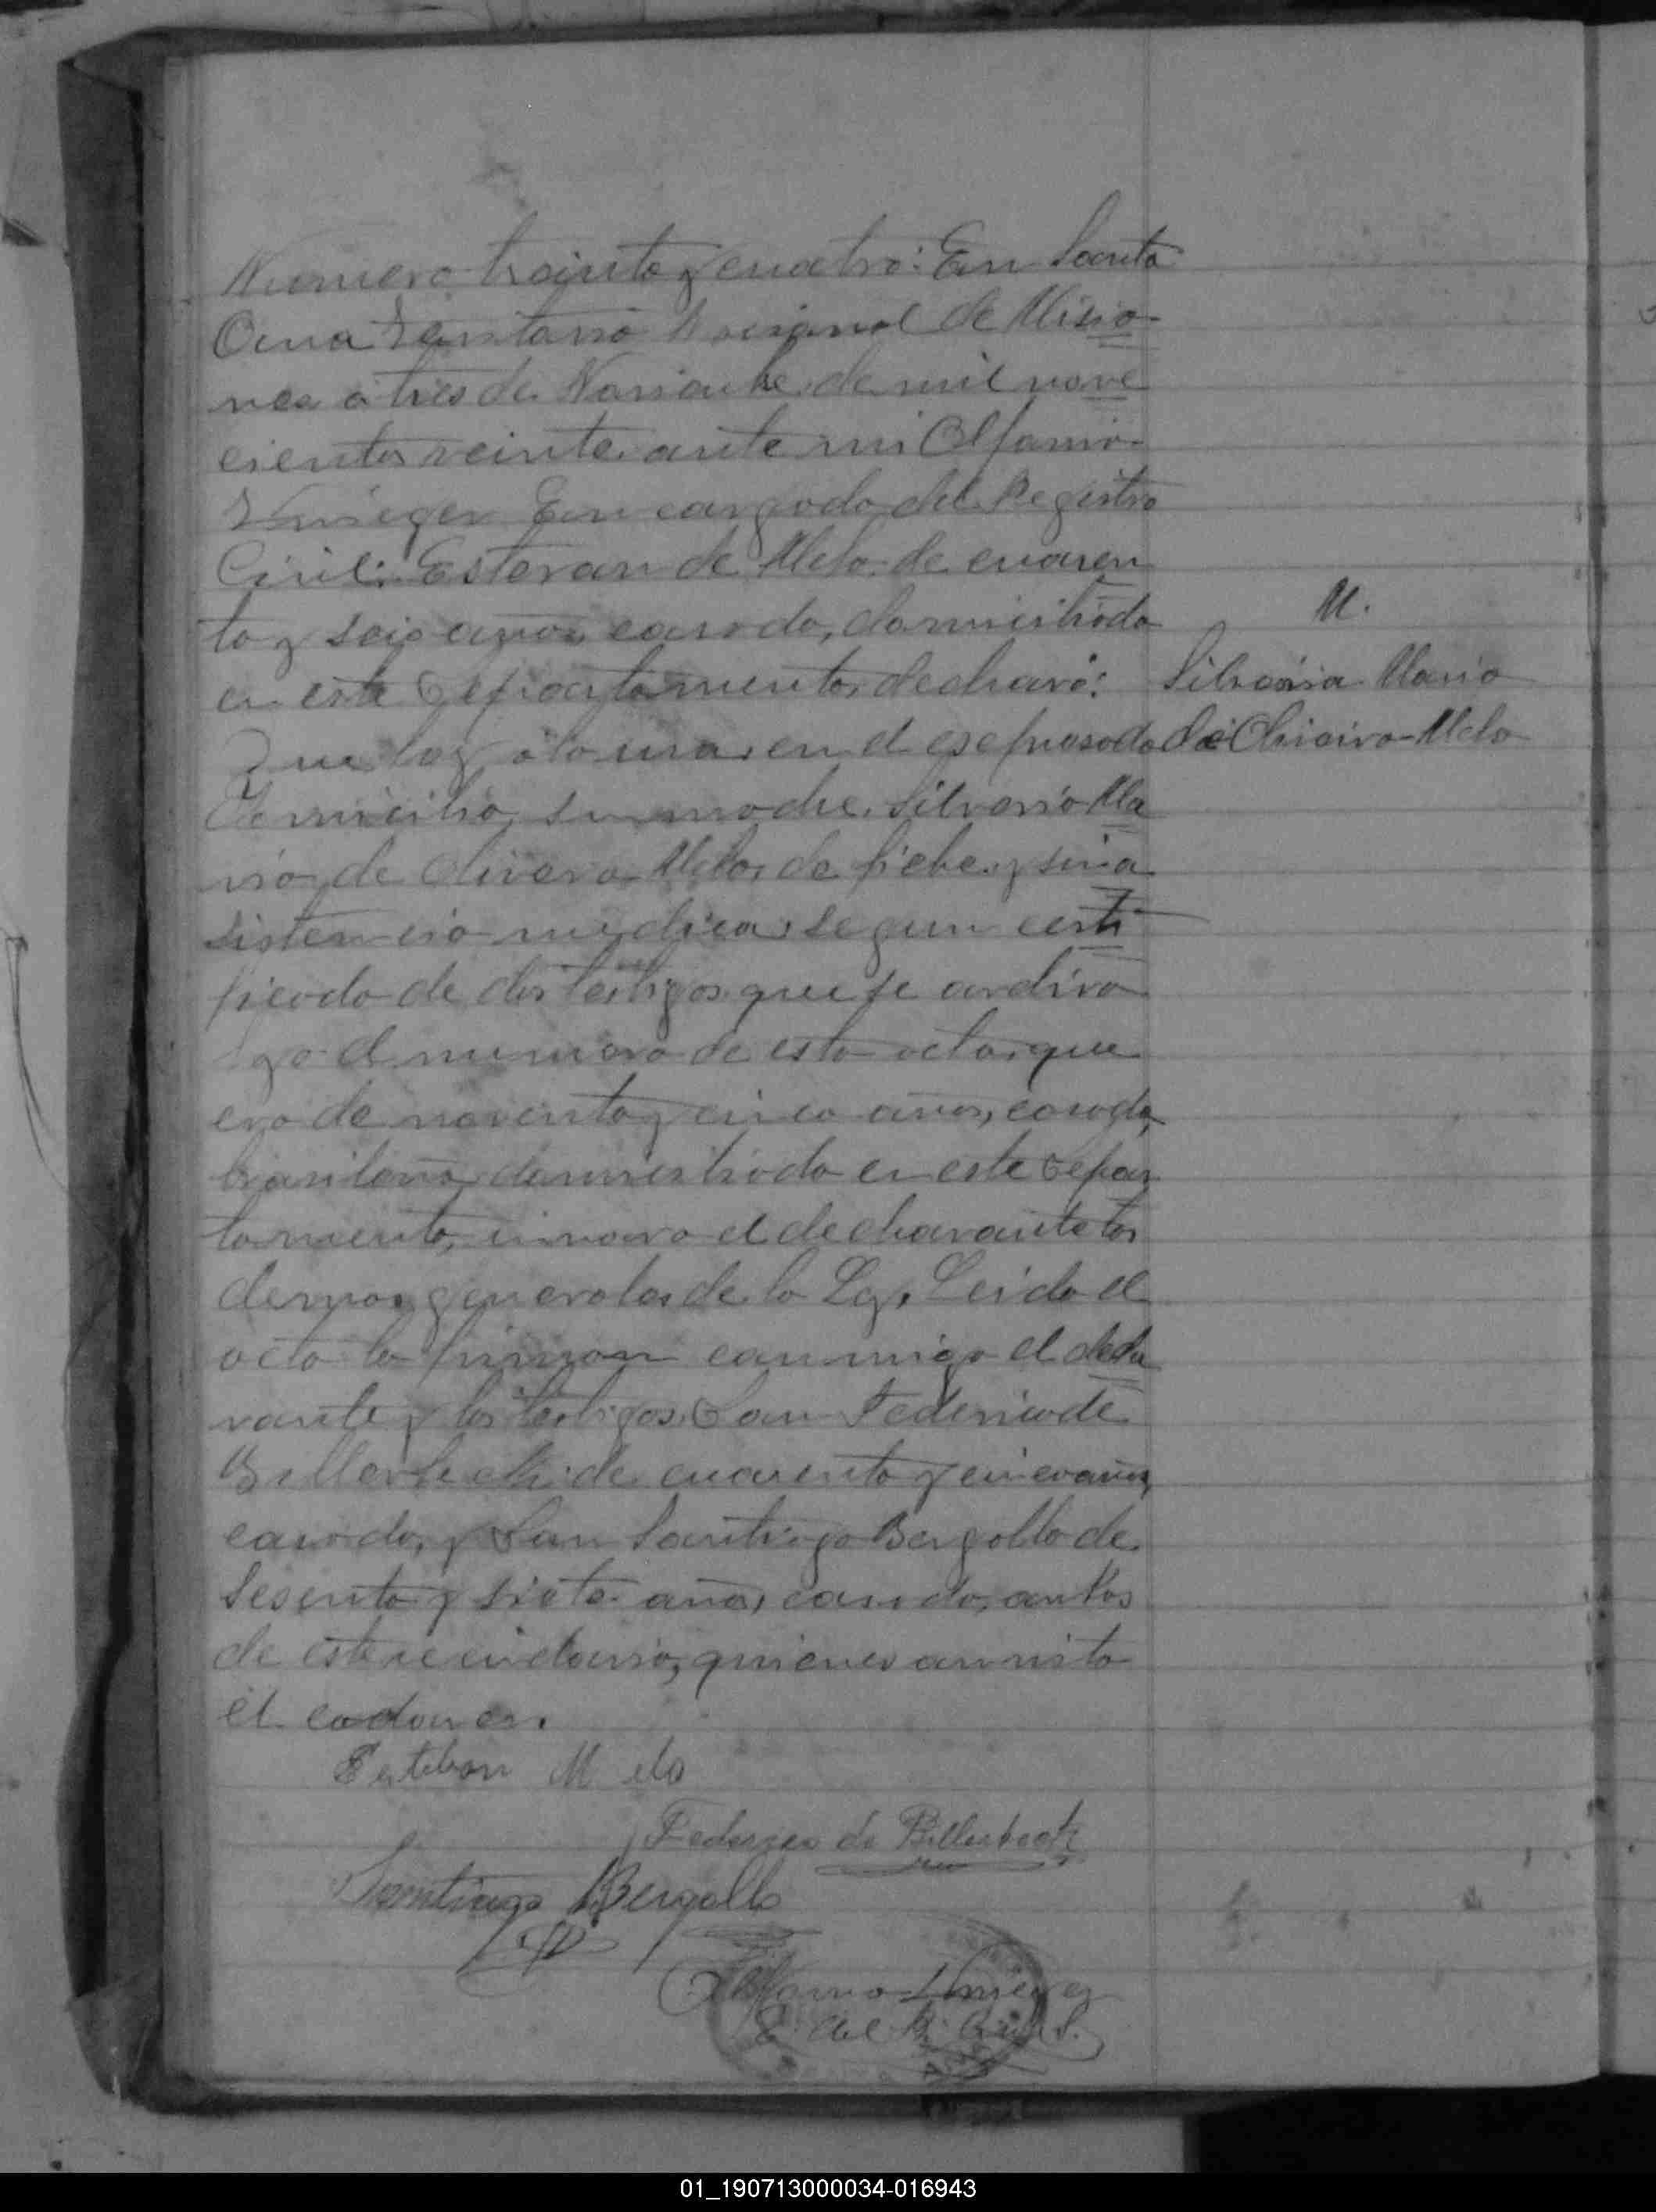 Numero treinta y cuatro: En Santa
Ana Territorio Nacional de Misio-
nes a tres de Noviembre de mil nove
cientos veinte. ante mi
Encargado del Registro
Civil: Estevan de Melo. de cuaren
ta y seis años casado, domiciliado
en este Departamento, declaró:
Que hoy a la una, en el expresado
domicilio, su madre. Silveria Ma
ria de Olivera Melo, de fiebre, y sin a
sistencia medica, segun certi
ficado de dos testigos que se archiva
el numero de esta acta, que
era de noventa y cinco años, casada,
brasilera, domiciliada en este Depar
tamento, ignora el declarante las
demas generales de la Ley, Leida el
acta la firman conmigo el decla
rante y los testigos Don Federico de
Billerbeck: de cuarenta y cinco años,
casado, y Don Santiago Bergallo de
Sesenta y siete años, casado, ambos
de este vecindario, quienes an visto
el cadaver.
M.
Silveria Maria
de Oliveira Melo
Esteban Melo
Federico de Billerbeck
Santiago Bergallo
E. del R. Civil.
01_190713000034-016943